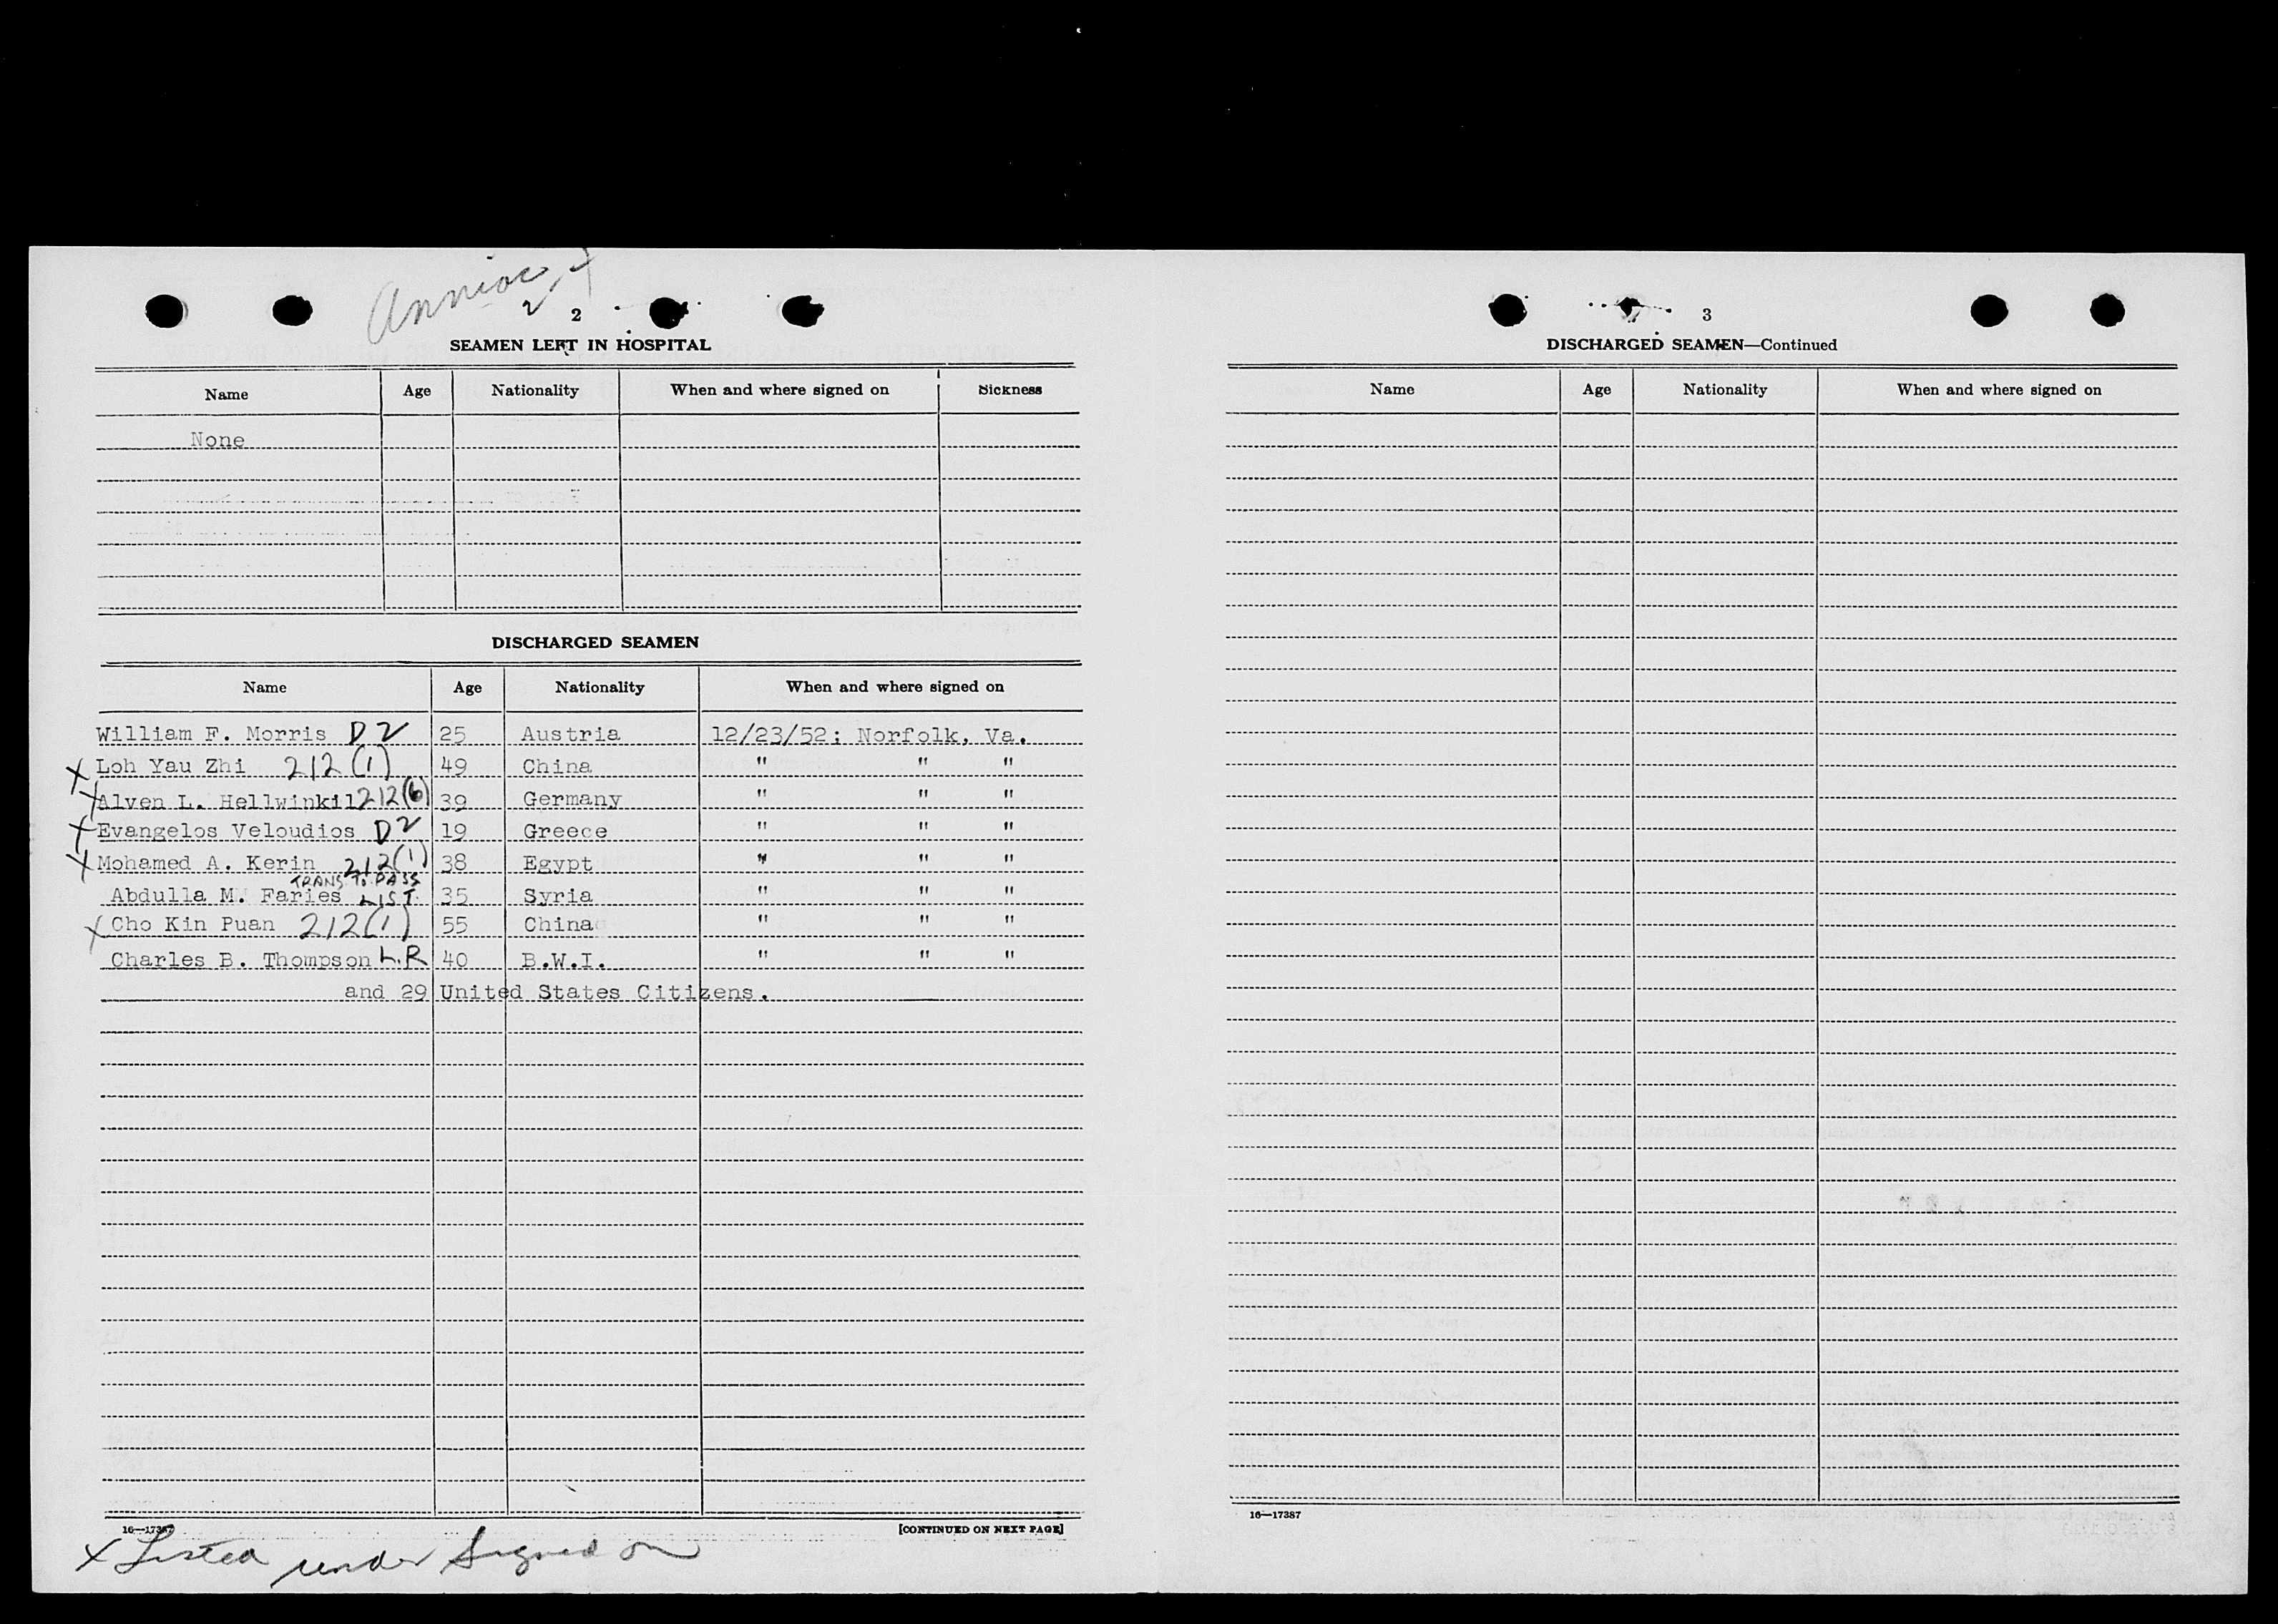 2
SEAMEN LEFT IN HOSPITAL
Name Age Nationality When and where signed on Sickness
None
DISCHARGED SEAMEN
Name Age Nationality When and where signed on
William F. Morris D2 25 Austria 12/23/52: Norfolk, Va.
X Loh Yau Zhi 212(1) 49 China " " "
X Alven L. Hellwinkil 212(6) 39 Germany " " "
X Evangelos Veloudios D2 19 Greece " " "
X Mohamed A. Kerin 212(1) 38 Egypt " " "
TRANS. TO PASS
Abdulla M. Faries LIST. 35 Syria " " "
X Cho Kin Puan 212(1) 55 China " " "
Charles B. Thompson L.R 40 B.W.I. " " "
and 29 United States Citizens.
16—17387
[CONTINUED ON NEXT PAGE]
X Listed under Signed on
3
DISCHARGED SEAMEN—Continued
Name Age Nationality When and where signed on
16—17387